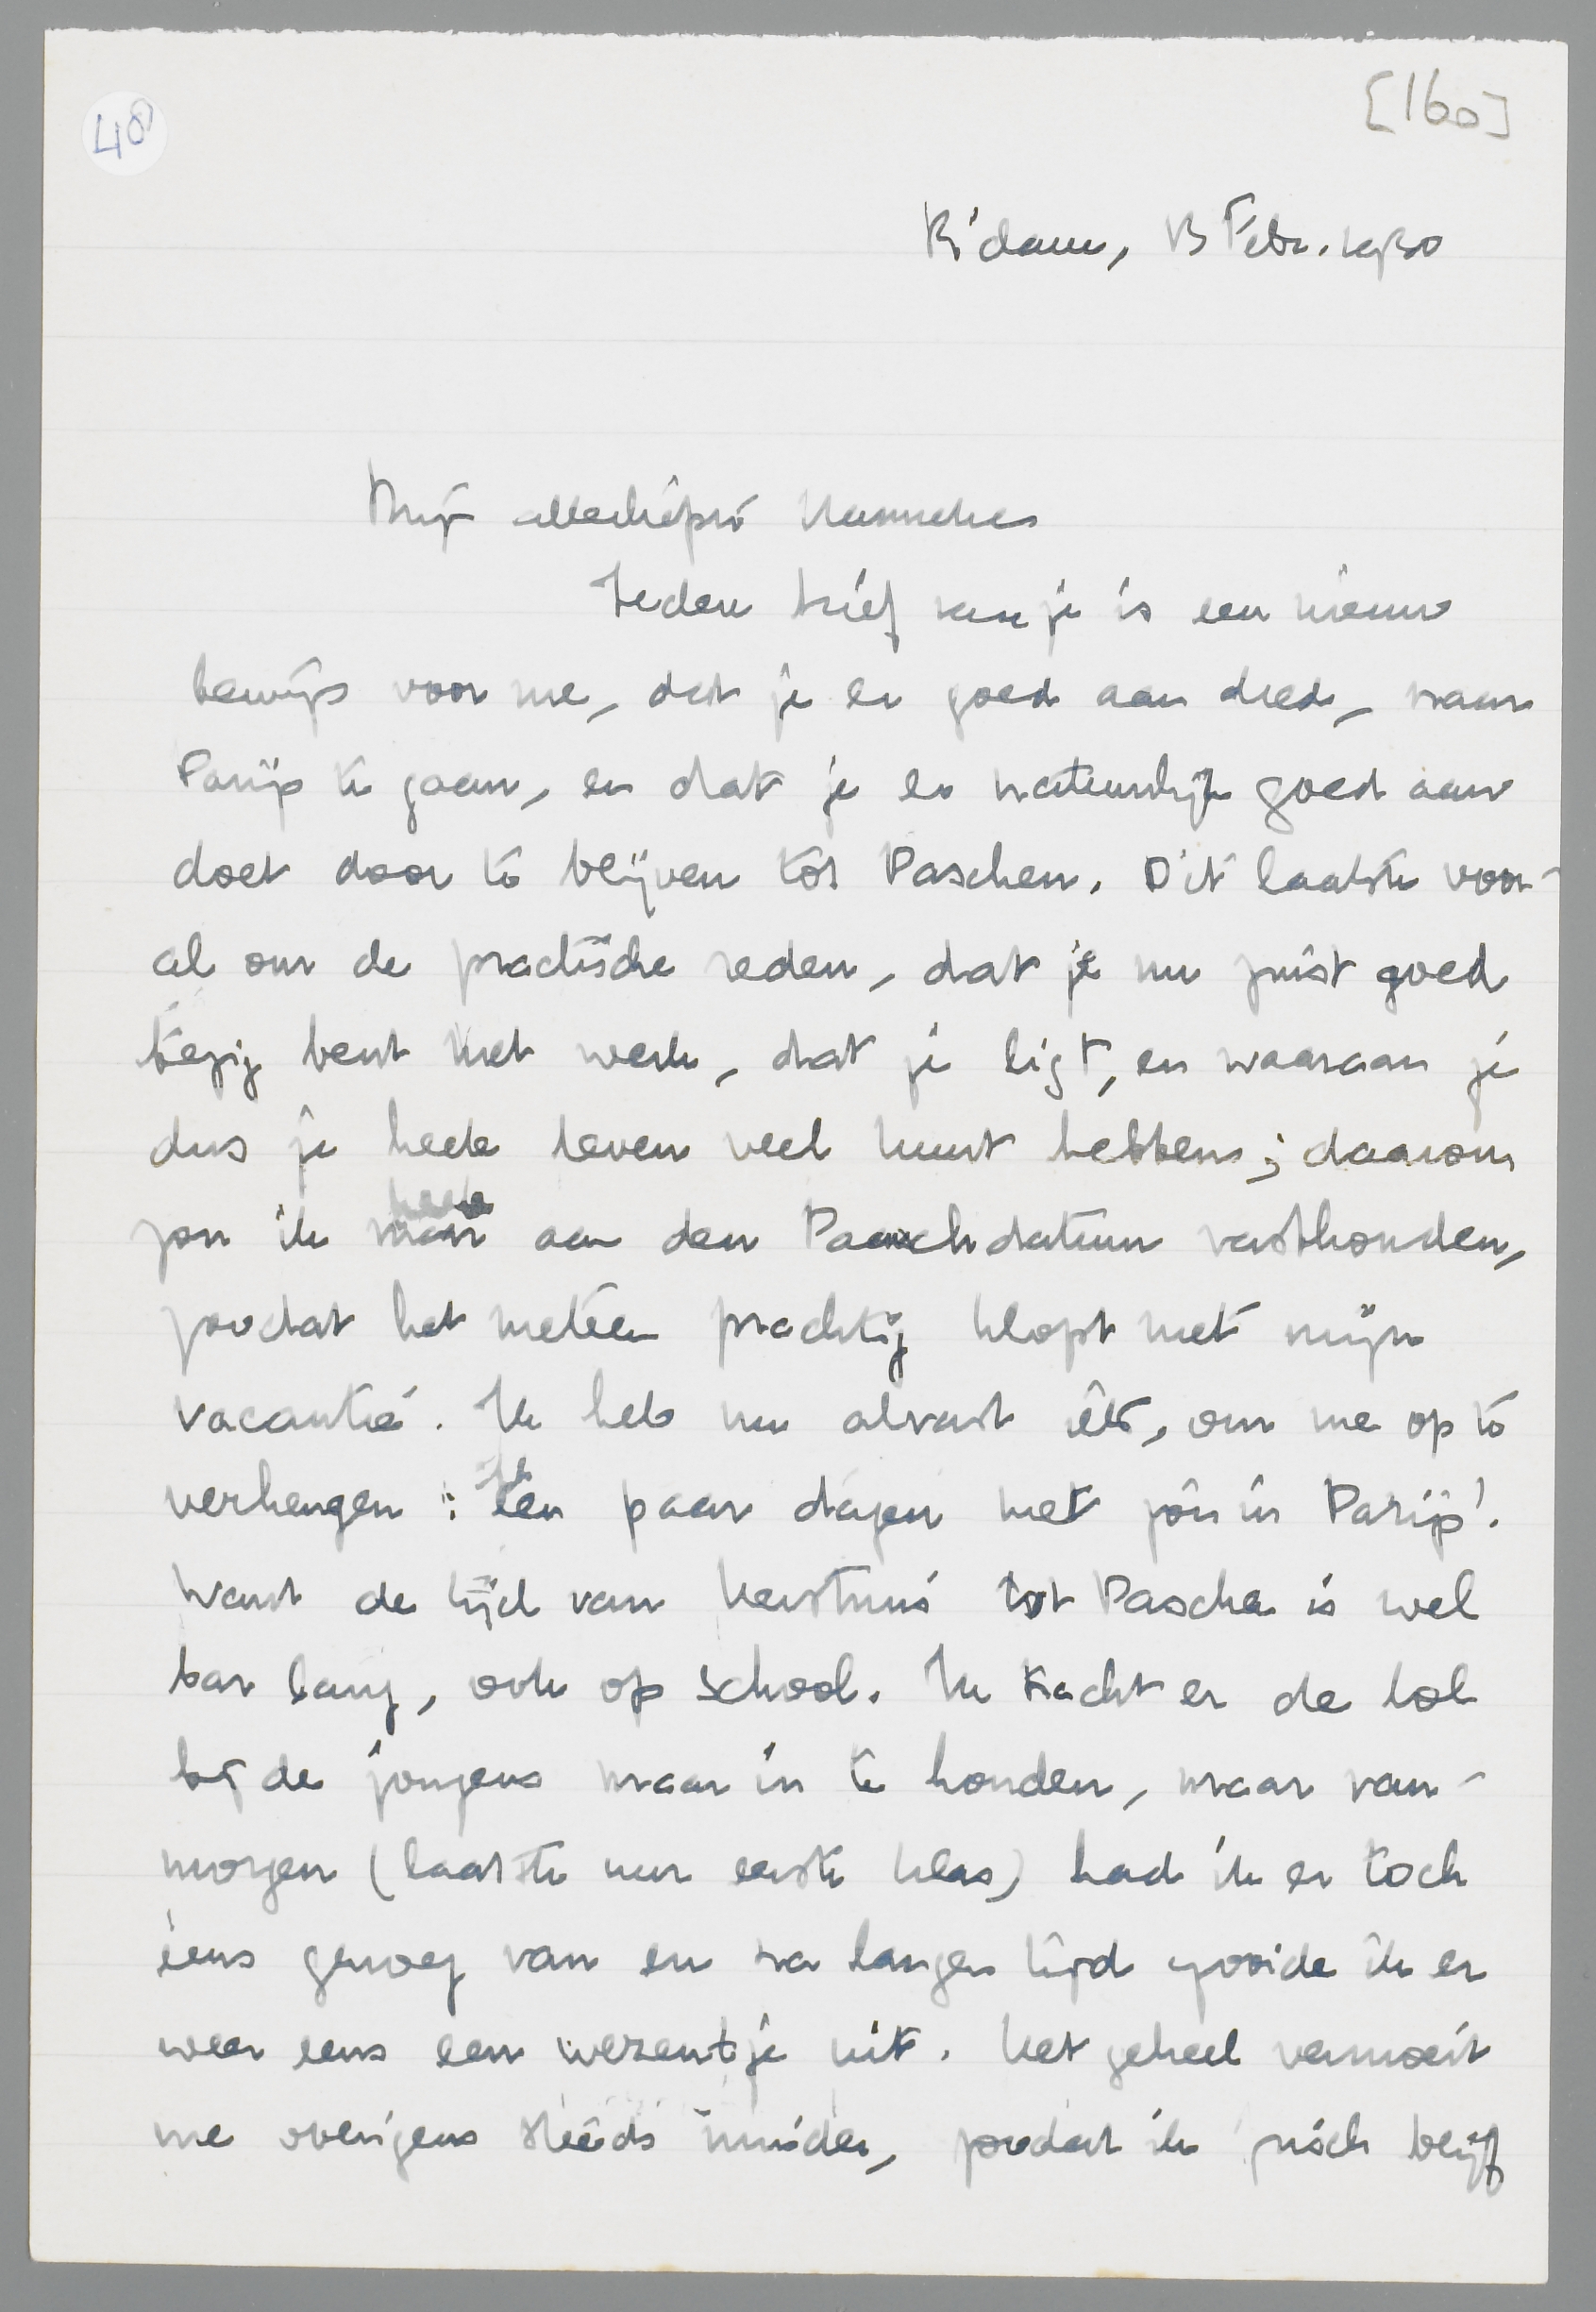 48
[160]
R'dam, 13 Febr. 1930
Mijn allerliefste Hanneke
Iedere brief van je is een nieuw
bewijs voor me, dat je er goed aan deed, naar
Parijs te gaan, en dat je er natuurlijk goed aan
doet door te blijven tot Paschen. Dit laatste voor-
al om de practische reden, dat je nu juist goed
bezig bent met werk, dat je ligt, en waaraan je
dus je heele leven veel kunt hebben; daarom
zou ik maar aan den Paaschdatum vasthouden,
zoodat het meteen prachtig klopt met mijn
vacantie. Ik heb nu alvast iets, om me op te
verheugen: Een paar dagen met jou in Parijs!
Want de tijd van Kerstmis tot Pasche is wel
bar lang, ook op school. Ik tracht er de lol
bij de jongens maar in te houden, maar van-
morgen (laatste uur eerste klas) had ik er toch
eens genoeg van en na langen tijd gooide ik er
weer eens een wezentje uit. Het geheel vermoeit
me overigens steeds minder, zoodat ik frisch blijf